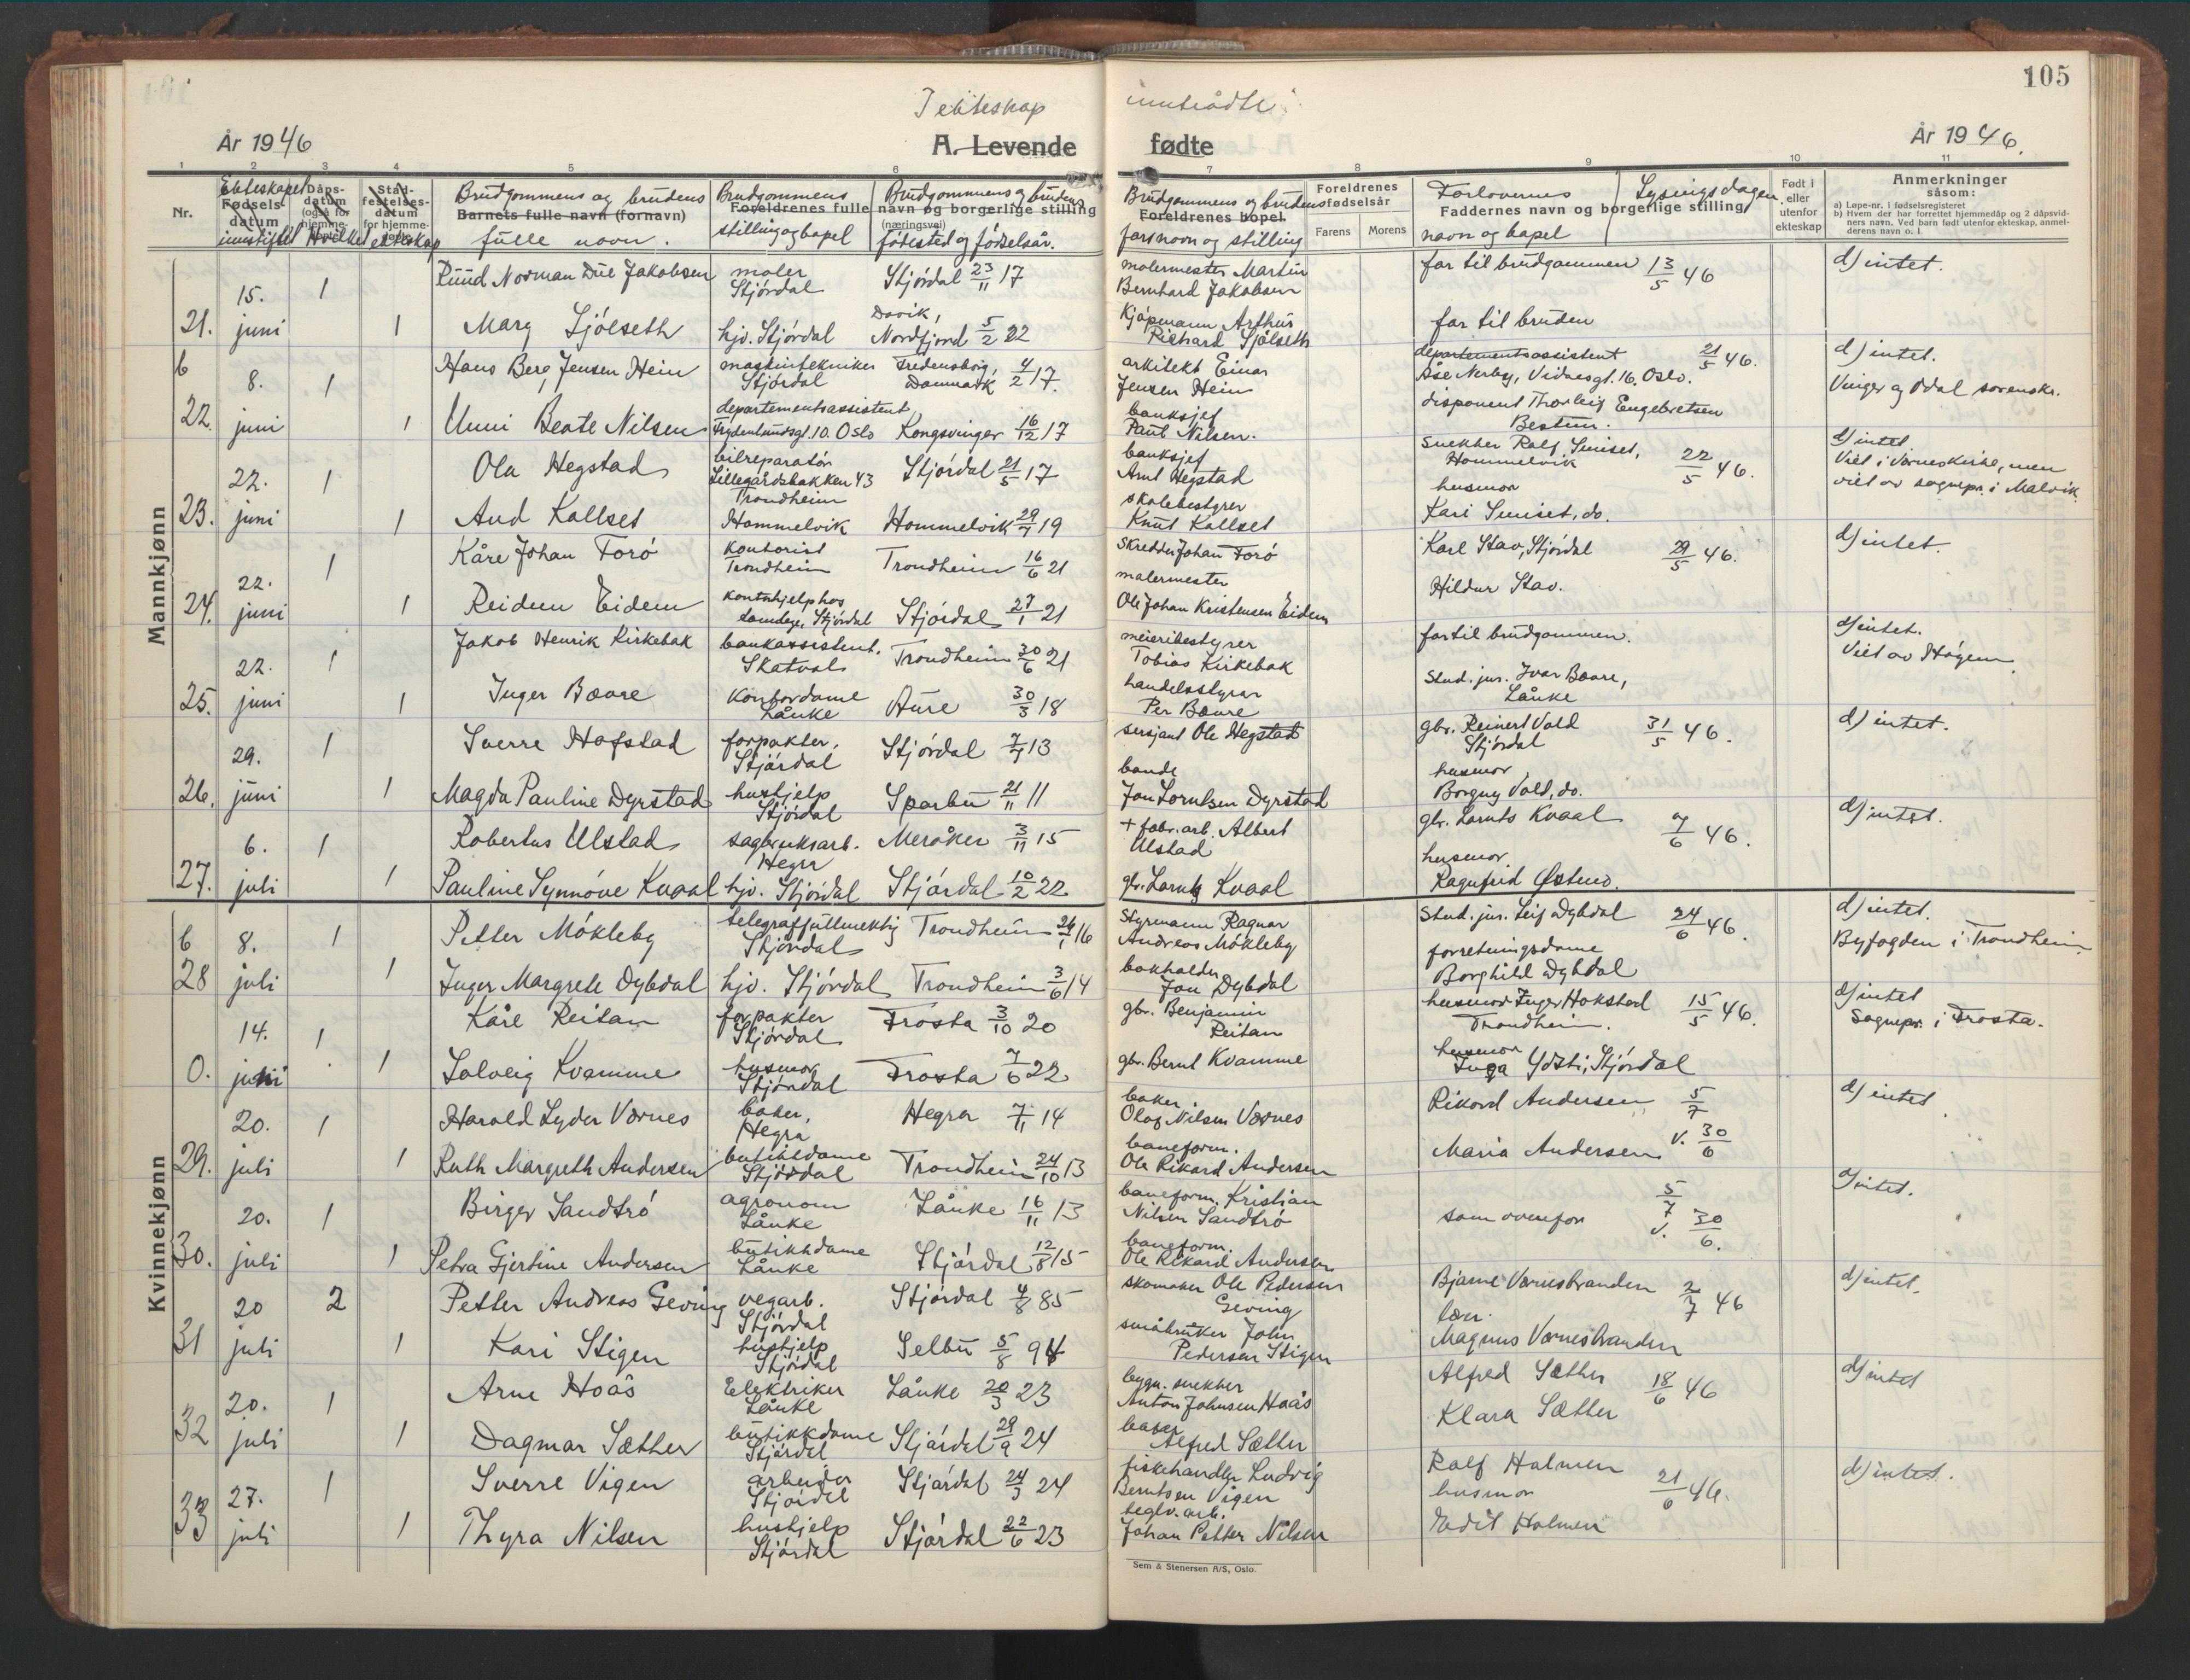 105
I ekteskap inntrådte
År 1946 A. Levende fødte År 1946.
1 2 3 4 5 6 7 8 9 10 11
Nr.
Ekteskapet Fødselsdatum innstiftet
Dåpsdatum (også for hjemmedøpte) Hvilket
Stadfestelsesdatum for hjemmedøpte ekteskap
Brudgommens og brudens
Barnets fulle navn (fornavn)
fulle navn.
Brudgommens stilling og bopel
Brudgommens og brudens
Foreldrenes fulle navn og borgerlige stilling
(næringsvei)
fødested og fødselsår.
Brudgommens og brudens
Foreldrenes bopel
farsnavn og stilling
Foreldrenes fødselsår
Farens Morens
Forlovernes
Faddernes navn og borgerlige stilling
navn og bopel
Lysingsdagen
Født i eller utenfor ekteskap
Anmerkninger
såsom:
a) Løpe-nr. i fødselsregisteret
b) Hvem der har forrettet hjemmedåp og 2 dåpsvidners navn. Ved barn født utenfor ekteskap, anmelderens navn o. l.
Mannkjønn
21. 15. juni 1 Ruud Norman Due Jakobsen maler Stjørdal Stjørdal 23/11 17 malermester Martin Bernhard Jakobsen far til brudgommen 13/5 46 d) intet.
1 Mary Sjölseth hjv. Stjørdal Davik, Nordfjord 5/2 22 Kjøpmann Arthur Richard Sjölseth far til bruden
b 22. 8. juni 1 Hans Berg Jensen Hein maskintekniker Stjørdal Fredensborg, Danmark 4/2 17. arkitekt Einar Jensen Hein departementsassistent Åse Nerby, Vidarsgt. 16. Oslo. 21/5 46. d) intet.
Vinger og Odal sorenskr.
1 Unni Beate Nilsen departementsassistent Frydenlundsgt. 10. Oslo Kongsvinger 16/12 17 banksjef Paul Nilsen. disponent Thorleif Engebretsen Bestum.
23. 22. juni 1 Ola Hegstad bilreparatör Lillegårdsbakken 43 Trondheim Stjørdal 21/5 17 banksjef Arnt Hegstad snekker Ralf Smiset, Hommelvik 22/5 46. d) intet.
Viet i Værneskirke, men viet av sognepr. i Malvik.
1 Aud Kallset Hommelvik Hommelvik 29/7 19 skolebestyrer Knut Kallset husmor Kari Smiset, do.
24. 22. juni 1 Kåre Johan Forö kontorist Trondheim Trondheim 16/6 21 Skredder Johan Forö Karl Stav, Stjørdal 29/5 46. d) intet.
1 Reidun Eidem Stjørdal Stjørdal 27/1 21 malermester Ole Johan Kristensen Eidem Hildur Stav.
25. 22. juni 1 Jakob Henrik Kirkebak bankassistent. Skatval Trondheim 30/6 21 meieribestyrer Tobias Kirkebak far til brudgommen. d) intet.
Viet av Högem.
1 Inger Bævre kontordame Lånke Aure 30/3 18 handelsstyrer Per Bævre Stud. jur. Ivar Bævre, Lånke
26. 29. juni 1 Sverre Hofstad forpakter. Stjørdal Stjørdal 7/7 13 sersjant Ole Hegstad gbr. Reinert Vold Stjørdal 31/5 46. d) intet.
1 Magda Pauline Dyrstad hushjelp Stjørdal Sparbu 21/11 11 bonde Jon Lorntsen Dyrstad husmor Borgny Vold, do.
27. 6. juli 1 Robertus Ulstad sagbruksarb. Hegra Meråker 3/11 15 + fabr. arb. Albert Ulstad gbr. Lornts Kvaal 7/6 46. d) intet.
1 Pauline Synnöve Kvaal hjv. Stjørdal Stjørdal 10/2 22 gbr. Lornts Kvaal husmor Ragnfrid Østmo.
Kvinnekjønn
b 28 8. juli 1 Petter Mökleby telegraffullmektig Stjørdal Trondheim 26/1 16 Styrmann Ragnar Andreas Mökleby Stud. jur. Leif Dybdal 24/6 46. d) intet.
Byfogden i Trondheim
1 Inger Margrete Dybdal hjv. Stjørdal Trondheim 3/6 14 bokholder Jon Dybdal forretningsdame Borghild Dybdal
0. 14. juni 1 Kåre Reitan forpakter Stjørdal Frosta 3/10 20 gbr. Benjamin Reitan husmor Inger Hokstad Trondheim. 15/5 46. d) intet
Sognepr. i Frosta.
1 Solveig Kvamme husmor Stjørdal Frosta 7/6 22 gbr. Bernt Kvamme husmor Inga Ydsti, Stjørdal
29. 20. juli 1 Harald Lyder Værnes baker, Hegra Hegra 7/11 14 baker Olaf Nilsen Værnes Rikard Andersen 5/7 d) intet.
1 Ruth Margreth Andersen butikkdame Stjørdal Trondheim 24/10 13 baneform. Ole Rikard Andersen Maria Andersen v. 30/6
30. 20. juli 1 Birger Sandtrö agronom Lånke Lånke 16/11 13 baneform. Kristian Nilsen Sandtrö som ovenfor 5/7 v. 30/6. d) intet.
1 Petra Gjertine Andersen butikkdame Lånke Stjørdal 12/8 15 baneform. Ole Rikard Andersen
31 20 juli 2 Petter Andreas Geving vegarb. Stjørdal Stjørdal 4/8 85 skomaker Ole Pedersen Geving Bjarne Værnesbranden 2/7 46 d) intet.
1 Kari Stigen hushjelp Stjørdal Selbu 5/8 94 småbruker John Pedersen Stigen Magnus Værnesbranden
32 20. juli 1 Arne Hoås Elektriker Lånke Lånke 20/3 23 bygn. snekker Anton Johnsen Hoås Alfred Sæther 18/6 46 d) intet
1 Dagmar Sæther butikkdame Stjørdal Stjørdal 29/9 24 baker Alfred Sæther Klara Sæther
33 27. juli 1 Sverre Vigen arbeider Stjørdal Stjørdal 24/3 24 fiskehandler Ludvig Berntsen Vigen Ralf Holmen 21/6 46. d) intet.
1 Thyra Nilsen hushjelp Stjørdal Stjørdal 22/6 23 teglv. arb. Johan Petter Nilsen husmor Edit Holmen
Sem & Stenersen A/S, Oslo.